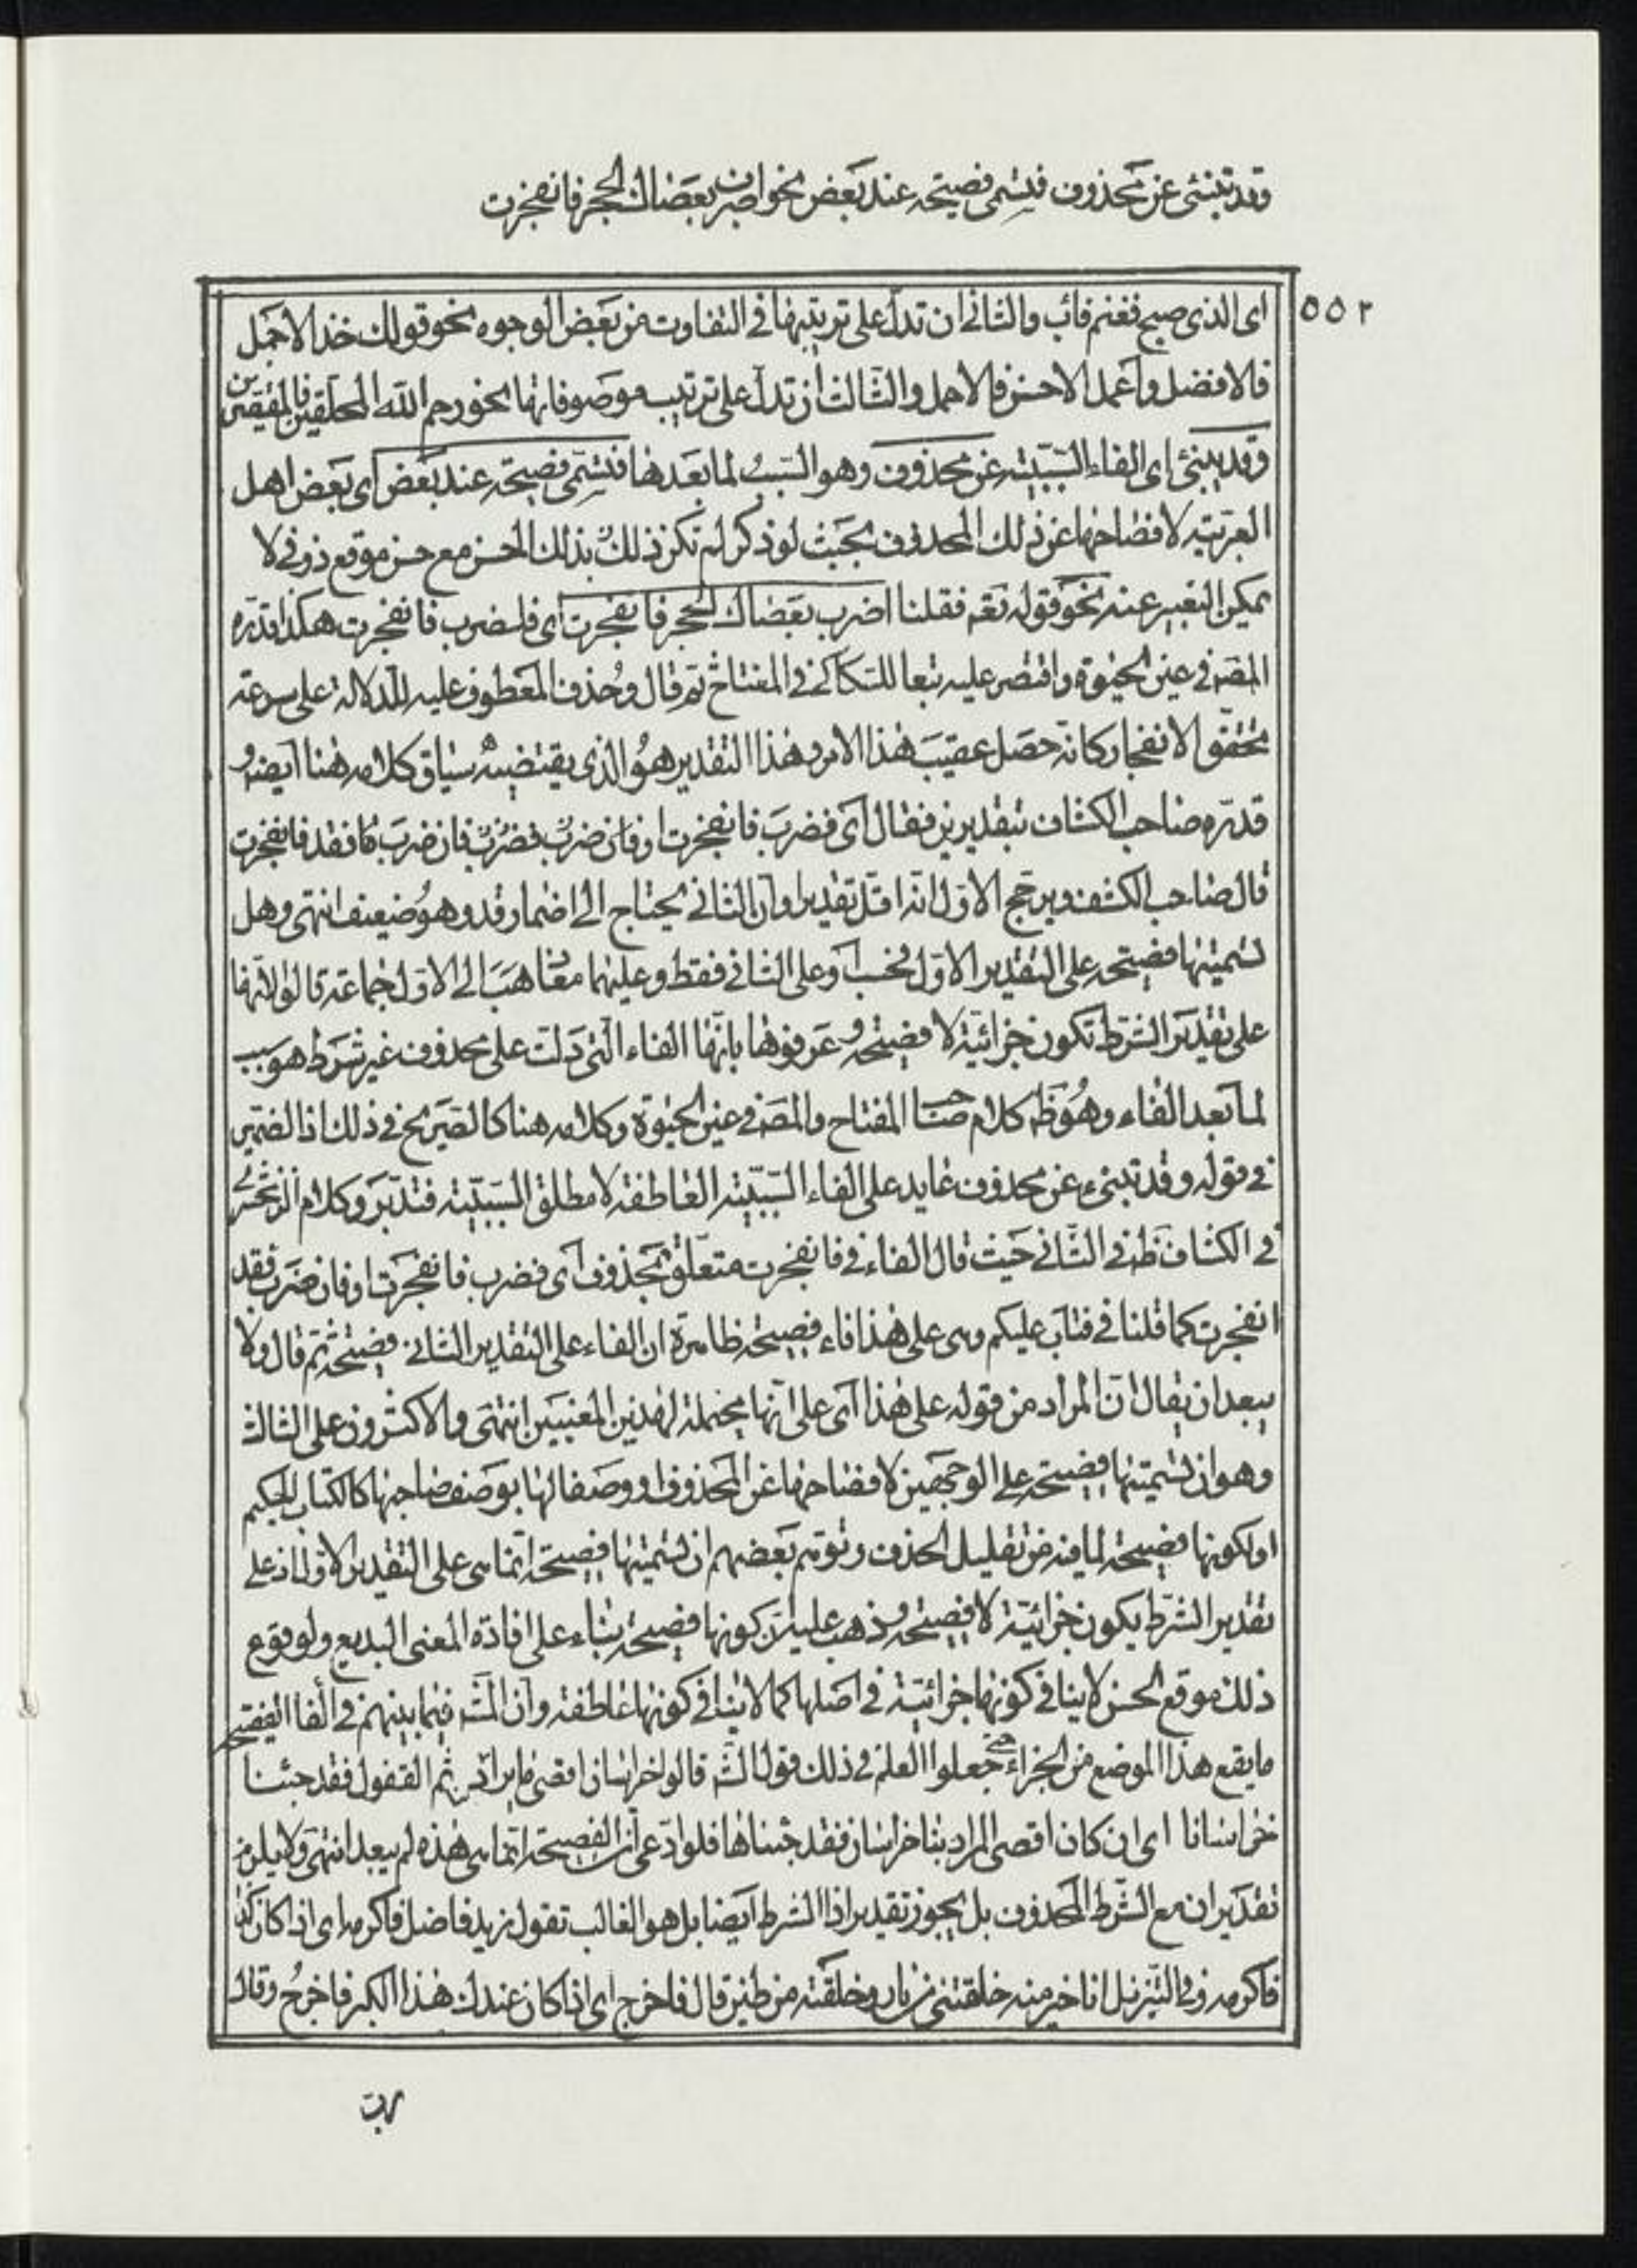 وقد تنبئ عن محذوف فتسمى فصيحة عند بعض نحو ان اضرب بعصاك الحجر فانفجرت
٥٥٢
اى الذى صبح فغنم فآب والثانى ان تدل على ترتيبها فى التفاوت من بعض الوجوه نحو قولك خذ الاجمل
فالافضل واعمل الاحسن فالاجمل والثالث ان تدل على ترتيب موصوفاتها نحو رحم الله المحلقين فالمقصرين
وقد ينبئ اى الفاء السببية عن محذوف وهو السبب لما بعدها فتسمى فصيحة عند بعض اى بعض اهل
العربية لافصاحها عن ذلك المحذوف بحيث لو ذكر لم تكن ذلك بذلك الحسن مع حسن موقع ذوقى لا
يمكن التعبير عنه نحو قوله تعم فقلنا اضرب بعصاك الحجر فانفجرت اى فلضرب فانفجرت هكذا قدره
المصّ فى عين الحيوة واقتصر عليه تبعا للسكاكى فى المفتاح ثم قال وحذف المعطوف عليه للدلالة على سرعة
تحقق الانفجار كانه حصل عقيب هذا الامر وهذا التقدير هو الذى يقتضيه سياق كلامه هنا ايضا و
قدره صاحب الكشاف بتقديرين فقال اى فضرب فانفجرت او فان ضربت فضرب فان ضرب فقد فانفجرت
قال صاحب الكشف ويرجح الاول انه اقل تقديرا وان الثانى يحتاج الى اضمار قد وهو ضعيف انتهى وهل
تسميتها فصيحة على التقدير الاول فحسب او على الثانى فقط وعليهما معا ذهب الى الاول جماعة قالوا لانها
على تقدير الشرط تكون جزائية لا فصيحة و عرفوها بانها الفاء التى دلت على محذوف غير شرط هو سبب
لما بعد الفاء وهو ظ كلام صاحب المفتاح والمصّ فى عين الحيوة وكلامه هنا كالصريح فى ذلك اذ الضمير
فى قوله وقد تنبئ عن محذوف عايد على الفاء السببية العاطفة لا مطلق السببية فتدبر وكلام الزمخشرى
فى الكشاف ظ فى الثانى حيث قال الفاء فى فانفجرت متعلق بمحذوف اى فضرب فانفجرت او فان ضرب فقد
انفجرت كما قلنا فى فتاب عليكم وهى على هذا فاء فصيحة ظاهره ان الفاء على التقدير الثانى فصيحة ثم قال ولا
يبعد ان يقال ان المراد من قوله على هذا اى على انها محتملة لهذين المعنيين انتهى والاكثرون على الثالث
وهو ان تسميتها فصيحة على الوجهين لافصاحها عن المحذوف او وصفا لها بوصف صاحبها كالكتاب الحكيم
او لكونها فصيحة لما فيه من تقليل الحذف وتوهم بعضهم ان تسميتها فصيحة انما هى على التقدير الاول اذ على
تقدير الشرط يكون جزائية لا فصيحة و ذهب عليه ان كونها فصيحة بناء على افادة المعنى البديع ولوقوع
ذلك موقع الحسن لا ينافى كونها جزائية فى اصلها كما لا ينافى كونها عاطفة وان المشّ فيما بينهم فى الفا الفصيحة
ما يقع هذا الموضع من الجزاء حتى جعلوا العلم فى ذلك قول الشّ قالوا خراسان اقصى ما يراد بنا ثم القفول فقد جئنا
خراسانا اى ان كان اقصى المراد بنا خراسان فقد جئناها فلو ادعى ان الفصيحة انما هى هذه لم يبعد انتهى ولا يلزم
تقدير ان مع الشرط المحذوف بل يجوز تقدير اذا الشرط ايضا بل هو الغالب تقول زيد فاضل فاكرمه اى اذا كان كذا
فاكرمه وفى التنزيل انا خير منه خلقتنى من نار وخلقته من طين قال فاخرج اى اذا كان عندك هذا الكبر فاخرج وقال
رب